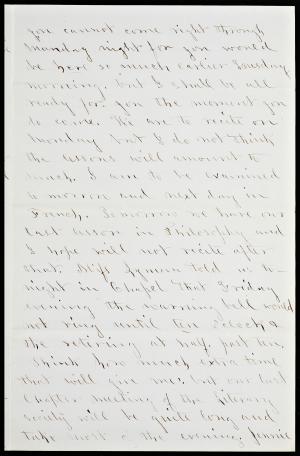 you cannot come right through
Monday night for you would
be here so much earlier Tuesday
morning, but I shall be all
ready for you the moment you
do come. We are to recite on
Monday but I do not think
the lessons will amount to
much. I am to be examined
to-morrow and next day in
French. Tomorrow we have our
last lesson in Philosophy and
I hope will not recite after
that. Miss Lyman told us to-
night in Chapel that Friday
evening the warning bell would
not ring until ten o'clock &
the retiring at half past ten.
Think how much extra time
that will give me; but our last
Chapter meeting of the Literary
society will be quite long and
take most of the evening. Jennie